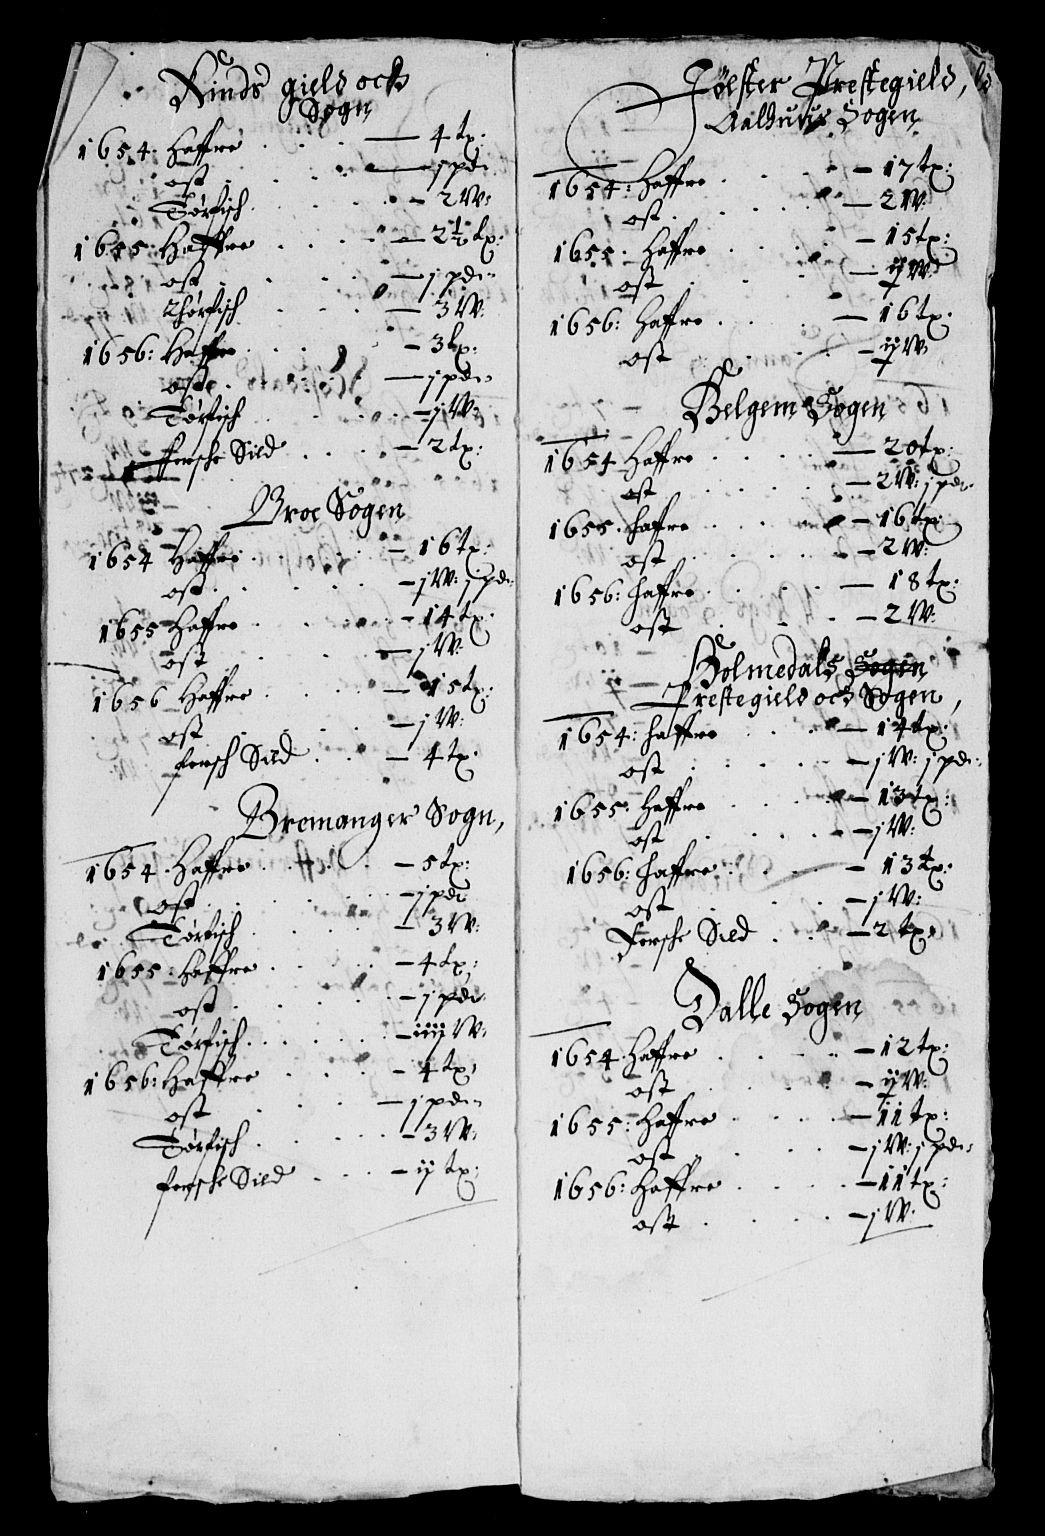 Kinds gield och
Sogn
1654. Haffre . . . — 4 tp:
ost . . . — j pd:
Törfisch . . . — 2 W:
1655: Haffre . . . — 2½ tp:
ost . . . — j pd:
Thörfisch . . . — 3 W:
1656: Haffre . . . — 3 tp:
oste . . . — j pd:
Törfisch . . . — j W:
fersche Sild . . . — 2 tp:
Broe Sogen
1654 Haffre . . . — 16 tp:
ost . . . — j W: j pd:
1655 Haffre . . . — 14 tp:
ost . . . — j W:
1656 Haffre . . . — 15 tp:
ost . . . — j W:
fersch Sild . . . — 4 tp:
Bremanger Sogn,
1654. Haffre . . . — 5 tp:
ost . . . — j pd:
Törfisch . . . — 3 W:
1655: Haffre . . . — 4 tp:
ost . . . — j pd:
Törfisch . . . — iiij W:
1656: Haffre . . . — 4 tp:
ost . . . — j pd:
Törfisch . . . — 3 W:
fersche Sild . . . — ij tp:
Jölster Prestegield,
Aalhuus Sogen
1654: Haffre . . . — 17 tp:
ost . . . — 2 W:
1655: Haffre . . . — 15 tp:
ost . . . — ij W:
1656: Haffre . . . — 16 tp:
ost . . . — ij W:
Helgem Sogen
1654 Haffre . . . — 20 tp:
ost . . . — 2 W: j pd:
1655. Haffre . . . — 16 tp:
ost . . . — 2 W:
1656: Haffre . . . — 18 tp:
ost . . . — 2 W:
Holmedals Sogen
Prestegield och Sogen,
1654: Haffre . . . — 14 tp:
ost . . . — j W: j pd:
1655: Haffre . . . — 13 tp:
ost . . . — j W:
1656: Haffre . . . — 13 tp:
ost . . . — j W:
Fersche Sild . . . — 2 tp:
Dalle Sogen
1654 Haffre . . . — 12 tp:
ost . . . — ij W:
1655: Haffre . . . — 11 tp:
ost . . . — j W: j pd:
1656: Haffre . . . — 11 tp:
ost . . . — j W: